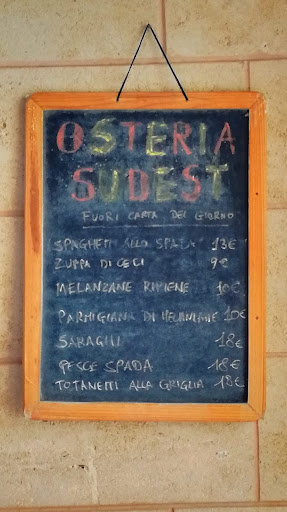 OSTERIA
SUDEST
FUORI CARTA DEL GIORNO
SPAGHETTI ALLO SPADA 13€
ZUPPA DI CECI 9€
MELANZANE RIPIENE 10€
PARMIGIANA DI MELANZANE 10€
SARAGHI 18€
PESCE SPADA 18€
TOTANETTI ALLA GRIGLIA 18€